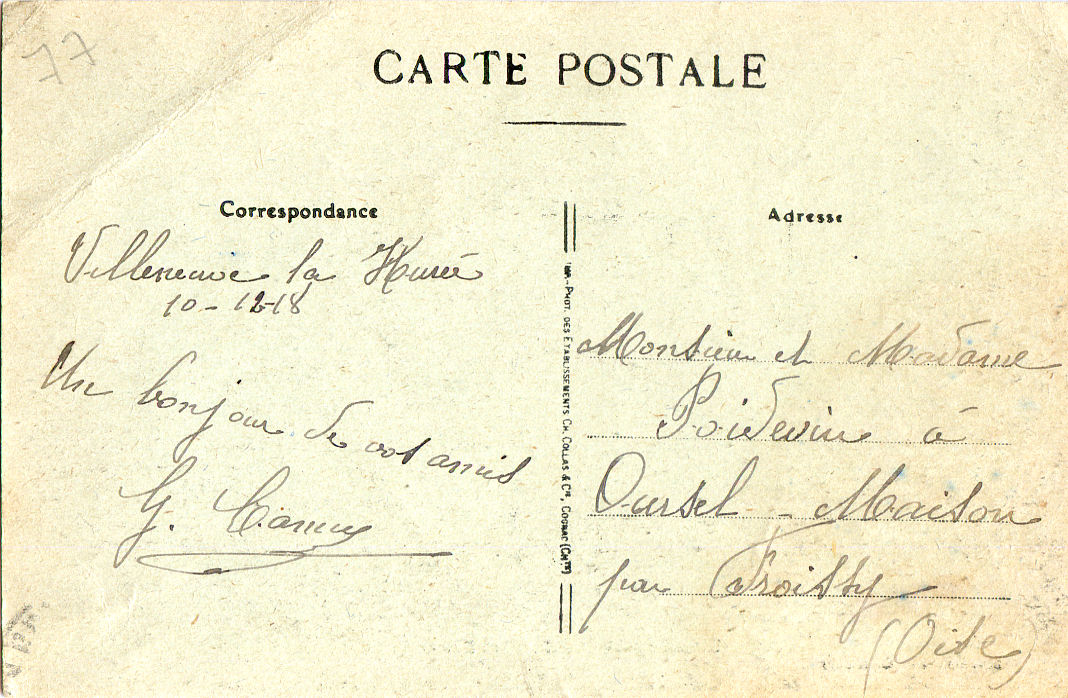 77
CARTE POSTALE
Correspondance
Villeneuve la Hurée
10-12-18
Un bonjour de vot amis
G. Camus
IMP.-PHOT. DES ÉTABLISSEMENTS CH. COLLAS & Cie, COGNAC (CHte)
Adresse
Monsieur et Madame
Poidevin à
Oursel-Maison
par Froissy
(Oise)